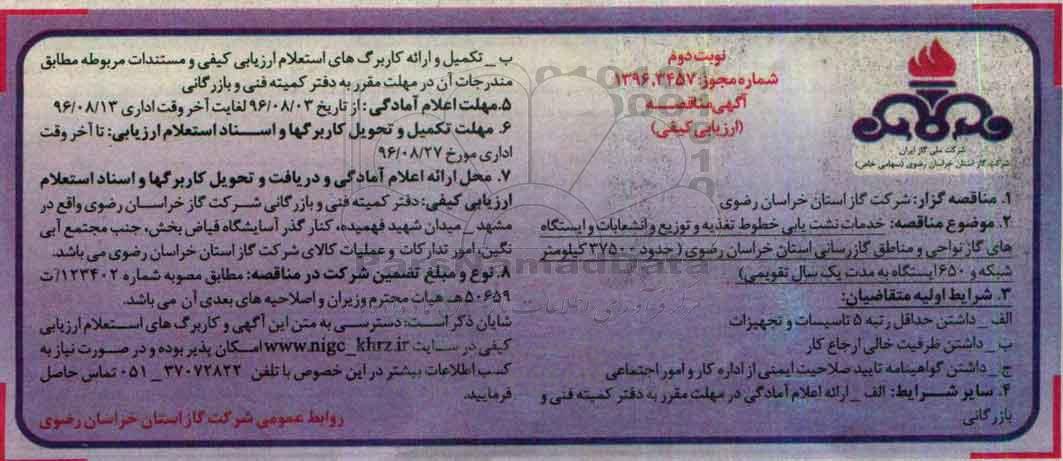 نوبت دوم
شماره مجوز: ۱۳۹۶.۳۴۵۷
آگهی مناقصه
(ارزیابی کیفی)
شرکت ملی گاز ایران
شرکت گاز استان خراسان رضوی (سهامی خاص)
۱. مناقصه گزار: شرکت گاز استان خراسان رضوی
۲. موضوع مناقصه: خدمات نشت یابی خطوط تغذیه و توزیع و انشعابات و ایستگاه
های گاز نواحی و مناطق گازرسانی استان خراسان رضوی (حدود ۳۷۵۰۰ کیلومتر
شبکه و ۶۵۰ ایستگاه به مدت یک سال تقویمی)
۳. شرایط اولیه متقاضیان:
الف _ داشتن حداقل رتبه ۵ تاسیسات و تجهیزات
ب _ داشتن ظرفیت خالی ارجاع کار
ج _ داشتن گواهینامه تایید صلاحیت ایمنی از اداره کار و امور اجتماعی
۴. سایر شرایط: الف _ ارائه اعلام آمادگی در مهلت مقرر به دفتر کمیته فنی و
بازرگانی
ب _ تکمیل و ارائه کاربرگ های استعلام ارزیابی کیفی و مستندات مربوطه مطابق
مندرجات آن در مهلت مقرر به دفتر کمیته فنی و بازرگانی
۵. مهلت اعلام آمادگی: از تاریخ ۹۶/۰۸/۰۳ لغایت آخر وقت اداری ۹۶/۰۸/۱۳
۶. مهلت تکمیل و تحویل کاربرگها و اسناد استعلام ارزیابی: تا آخر وقت
اداری مورخ ۹۶/۰۸/۲۷
۷. محل ارائه اعلام آمادگی و دریافت و تحویل کاربرگها و اسناد استعلام
ارزیابی کیفی: دفتر کمیته فنی و بازرگانی شرکت گاز خراسان رضوی واقع در
مشهد _ میدان شهید فهمیده، کنار گذر آسایشگاه فیاض بخش، جنب مجتمع آبی
نگین، امور تدارکات و عملیات کالای شرکت گاز استان خراسان رضوی می باشد.
۸. نوع و مبلغ تضمین شرکت در مناقصه: مطابق مصوبه شماره ۱۲۳۴۰۲/ت
۵۰۶۵۹هـ هیات محترم وزیران و اصلاحیه های بعدی آن می باشد.
شایان ذکر است: دسترسی به متن این آگهی و کاربرگ های استعلام ارزیابی
کیفی در سایت www.nigc_khrz.ir امکان پذیر بوده و در صورت نیاز به
کسب اطلاعات بیشتر در این خصوص با تلفن ۳۷۰۷۲۸۲۲ _ ۰۵۱ تماس حاصل
فرمایید.
روابط عمومی شرکت گاز استان خراسان رضوی